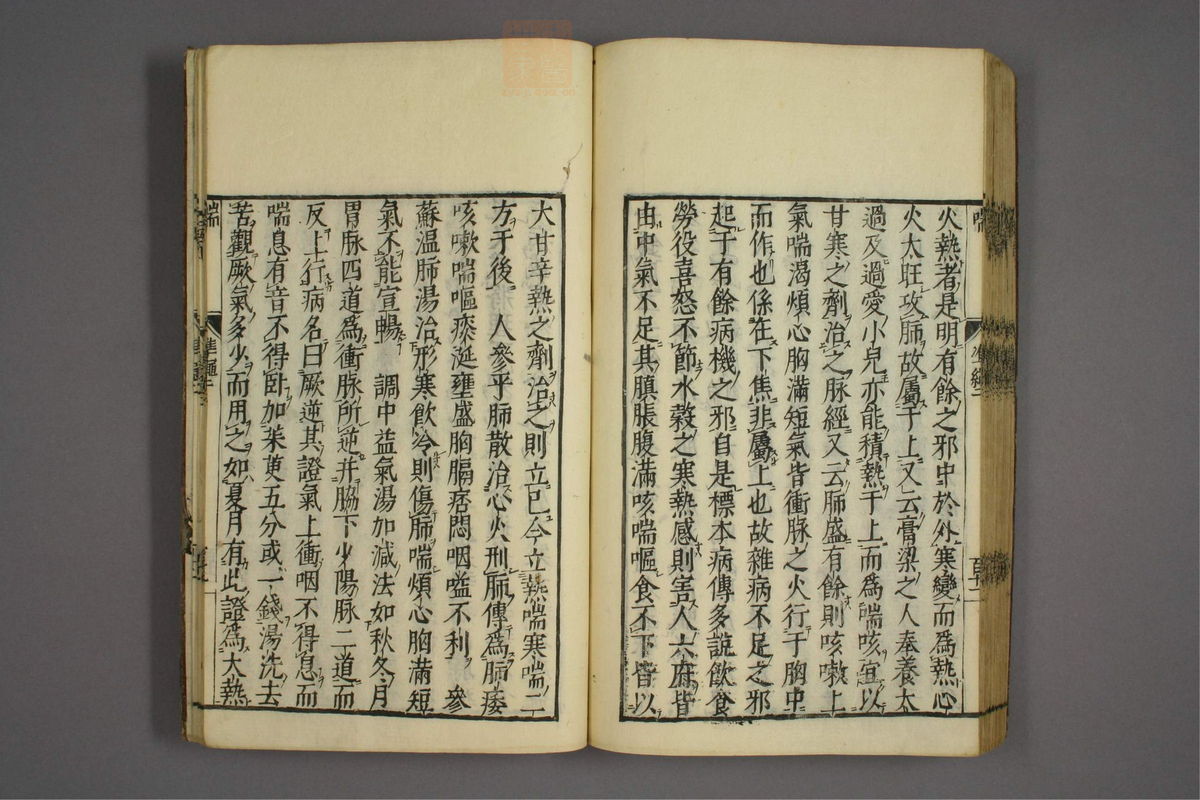 火熱者是明有餘之邪中於外寒變而爲熱心
火太旺攻肺故屬于上又云膏粱之人奉養太
過及過愛小兒亦能積熱于上而爲喘咳宜以
甘寒之劑治之脉經又云肺盛有餘則咳嗽上
氣喘渴煩心胸滿短氣皆衝脉之火行于胸中
而作也係在下焦非屬上也故雜病不足之邪
起于有餘病機之邪自是標本病傳多說飲食
勞役喜怒不節水穀之寒熱感則害人六府皆
由中氣不足其䐜脹腹滿咳喘嘔食不下皆以
大甘辛熱之劑治之則立已今立熱喘寒喘二
方于後　人參平肺散治心火刑肺傳爲肺痿
咳嗽喘嘔痰涎壅盛胸膈痞悶咽嗌不利　參
蘇溫肺湯治形寒飲冷則傷肺喘煩心胸滿短
氣不能宣暢　調中益氣湯加減法如秋冬月
胃脉四道爲衝脉所逆并脇下少陽脉二道而
反上行病名曰厥逆其證氣上衝咽不得息而
喘息有音不得卧加茱萸五分或一錢湯洗去
苦觀厥氣多少而用之如夏月有此證爲大熱
喘